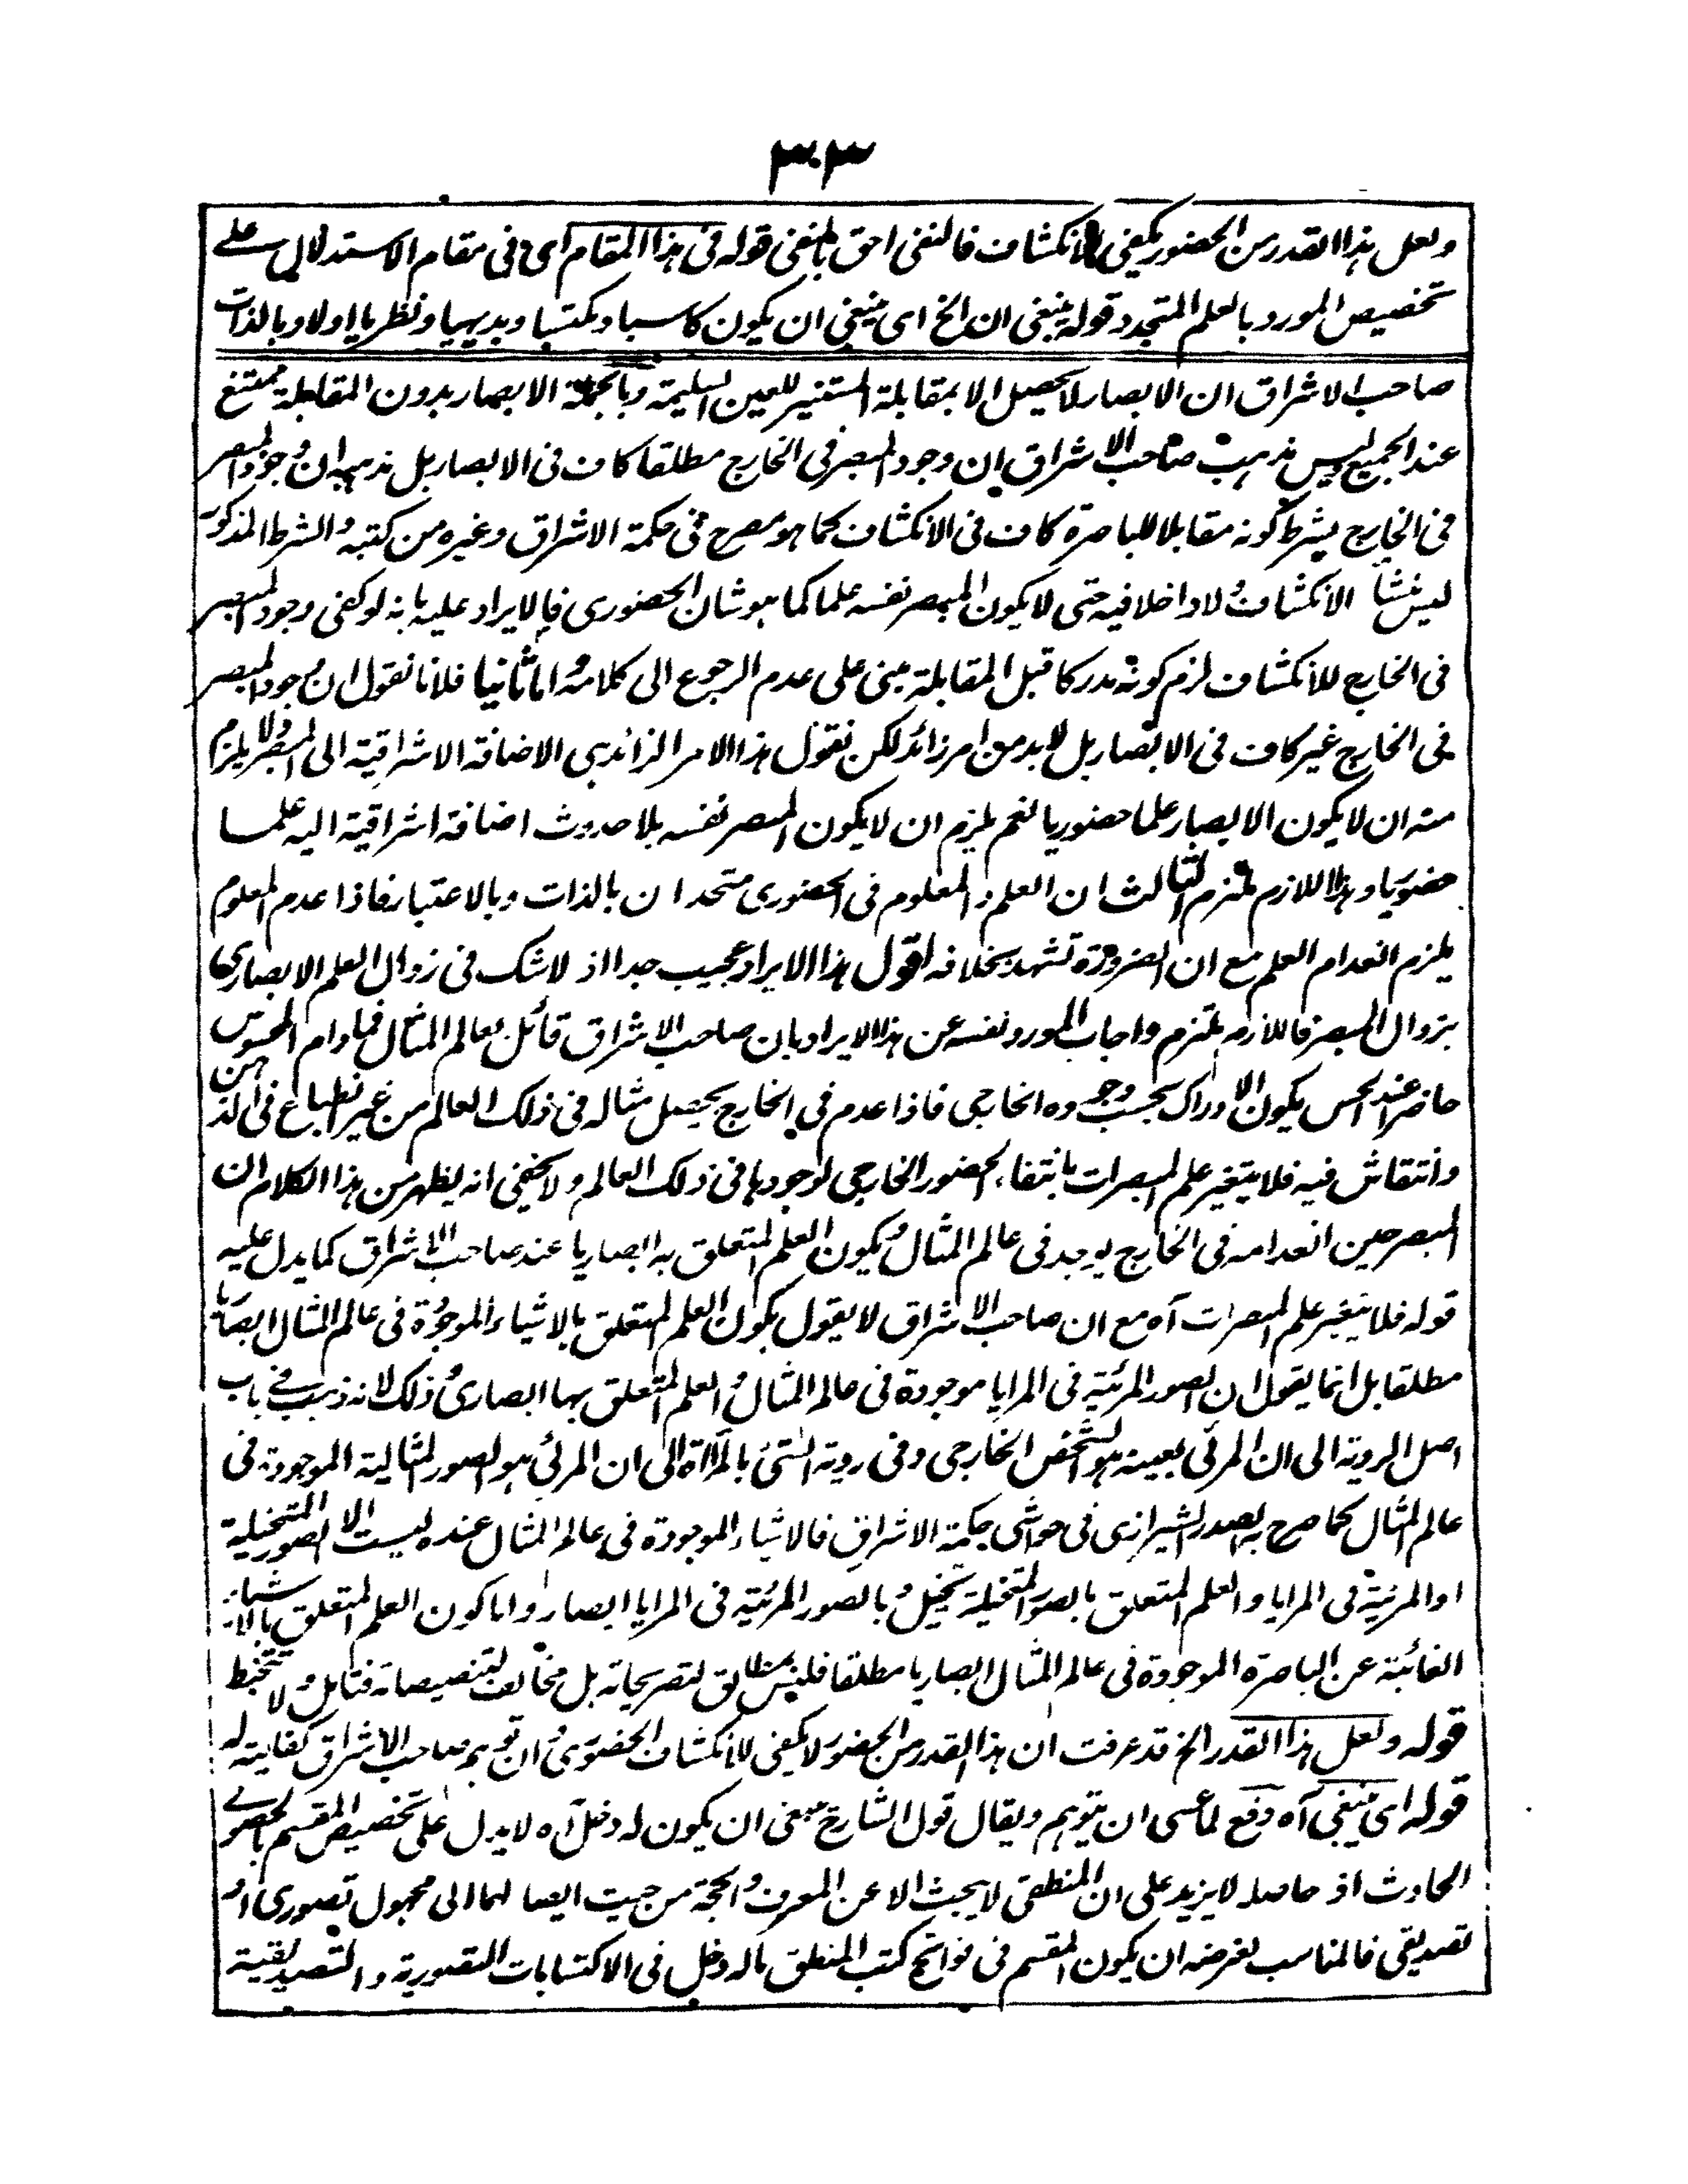 ٣٠٣
ولعل هذا القدر من الحضور يكفي للانكشاف فالنفي احق بالنفي قوله في هذا المقام اى في مقام الاستدلال على
تخصيص المورد بالعلم المتجدد قوله ينبغي ان الخ اى ينبغي ان يكون كاسبا ومكتسبا وبديهيا ونظريا اولا وبالذات
صاحب الاشراق ان الابصار لا يحصل الا بمقابلة المستنير للعين السليمة وبالجملة الابصار بدون المقابلة ممتنع
عند الجميع ليس مذهب صاحب الاشراق ان وجود المبصر في الخارج مطلقا كاف في الابصار بل مذهبه ان وجود المبصر
في الخارج بشرط كونه مقابلا للباصرة كاف في الانكشاف كما هو مصرح في حكمة الاشراق وغيره من كتبه والشرط المذكور
ليس منشأ الانكشاف ولا داخلا فيه حتى لا يكون المبصر نفسه علما كما هو شان الحضوري فالايراد عليه بانه لو كفى وجود المبصر
في الخارج للانكشاف لزم كونه مدركا قبل المقابلة مبنى على عدم الرجوع الى كلامه واما ثانيا فلانا نقول ان وجود المبصر
في الخارج غير كاف في الابصار بل لابد من امر زائد لكن نقول هذا الامر الزائد هي الاضافة الاشراقية الى المبصر ولا يلزم
منه ان لا يكون الابصار علما حضوريا نعم يلزم ان لا يكون المبصر نفسه بلا حدوث اضافة اشراقية اليه علما
حضوريا وهذا اللازم ملتزم الثالث ان العلم والمعلوم في الحضوري متحدان بالذات وبالاعتبار فاذا عدم المعلوم
يلزم انعدام العلم مع ان الضرورة تشهد بخلافه اقول هذا الايراد عجيب جدا اذ لا شك في زوال العلم الابصاري
بزوال المبصر فاللازم ملتزم واجاب المورد نفسه عن هذا الايراد بان صاحب الاشراق قائل بعالم المثال فما دام المحسوس
حاضرا عند الحس يكون الادراك بحسب وجوده الخارجي فاذا عدم في الخارج يحصل مثاله في ذلك العالم من غير انطباع في الذهن
وانتقاش فيه فلا يتغير علم المبصرات بانتفاء الحضور الخارجي لوجودها في ذلك العالم ولا يخفى انه يظهر من هذا الكلام ان
المبصر حين انعدامه في الخارج يوجد في عالم المثال ويكون العلم المتعلق به ابصاريا عند صاحب الاشراق كما يدل عليه
قوله فلا يتغير علم المبصرات آه مع ان صاحب الاشراق لا يقول بكون العلم المتعلق بالاشياء الموجودة في عالم المثال ابصاريا
مطلقا بل انما يقول ان الصور المرئية في المرايا موجودة في عالم المثال والعلم المتعلق بها ابصاري وذلك لانه ذهب في باب
اصل الروية الى ان المرئي بعينه هو الشخص الخارجي وفي روية الشئ بالمرآة الى ان المرئي هو الصور المثالية الموجودة في
عالم المثال كما صرح به الصدر الشيرازي في حواشي حكمة الاشراق فالاشياء الموجودة في عالم المثال عنده ليست الا الصور المتخيلة
او المرئية في المرايا والعلم المتعلق بالصور المتخيلة تخيل وبالصور المرئية في المرايا ابصار واما كون العلم المتعلق بالاشياء
الغائبة عن الباصرة الموجودة في عالم المثال ابصاريا مطلقا فليس بمطابق لتصريحاته بل مخالف لتنصيصاته فتامل ولا تخبط
قوله ولعل هذا القدر الخ قد عرفت ان هذا القدر من الحضور لا يكفي لانكشاف الحضوري وان توهم صاحب الاشراق كفايته له
قوله اى ينبغي آه دفع لما عسى ان يتوهم ويقال قول الشارح ينبغي ان يكون له دخل آه لا يدل على تخصيص المقسم بالحصولي
الحادث اذ حاصله لا يزيد على ان المنطقي لا يبحث الا عن المعرف والحجة من حيث ايصالهما الى مجهول تصوري او
تصديقي فالمناسب لغرضه ان يكون المقسم في فواتح كتب المنطق ماله دخل في الاكتسابات التصورية والتصديقية